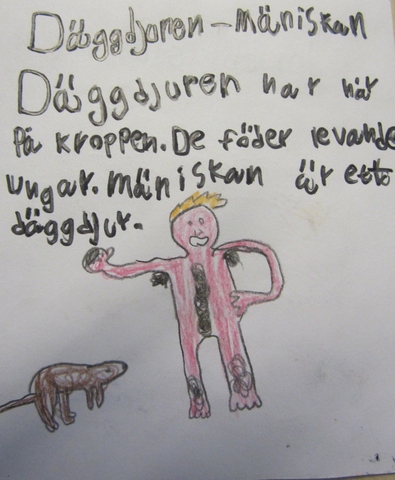 Däggdjuren - mäniskan
Däggdjuren har hår
På kroppen. De föder levande
ungar. mäniskan är ett
däggdjur.